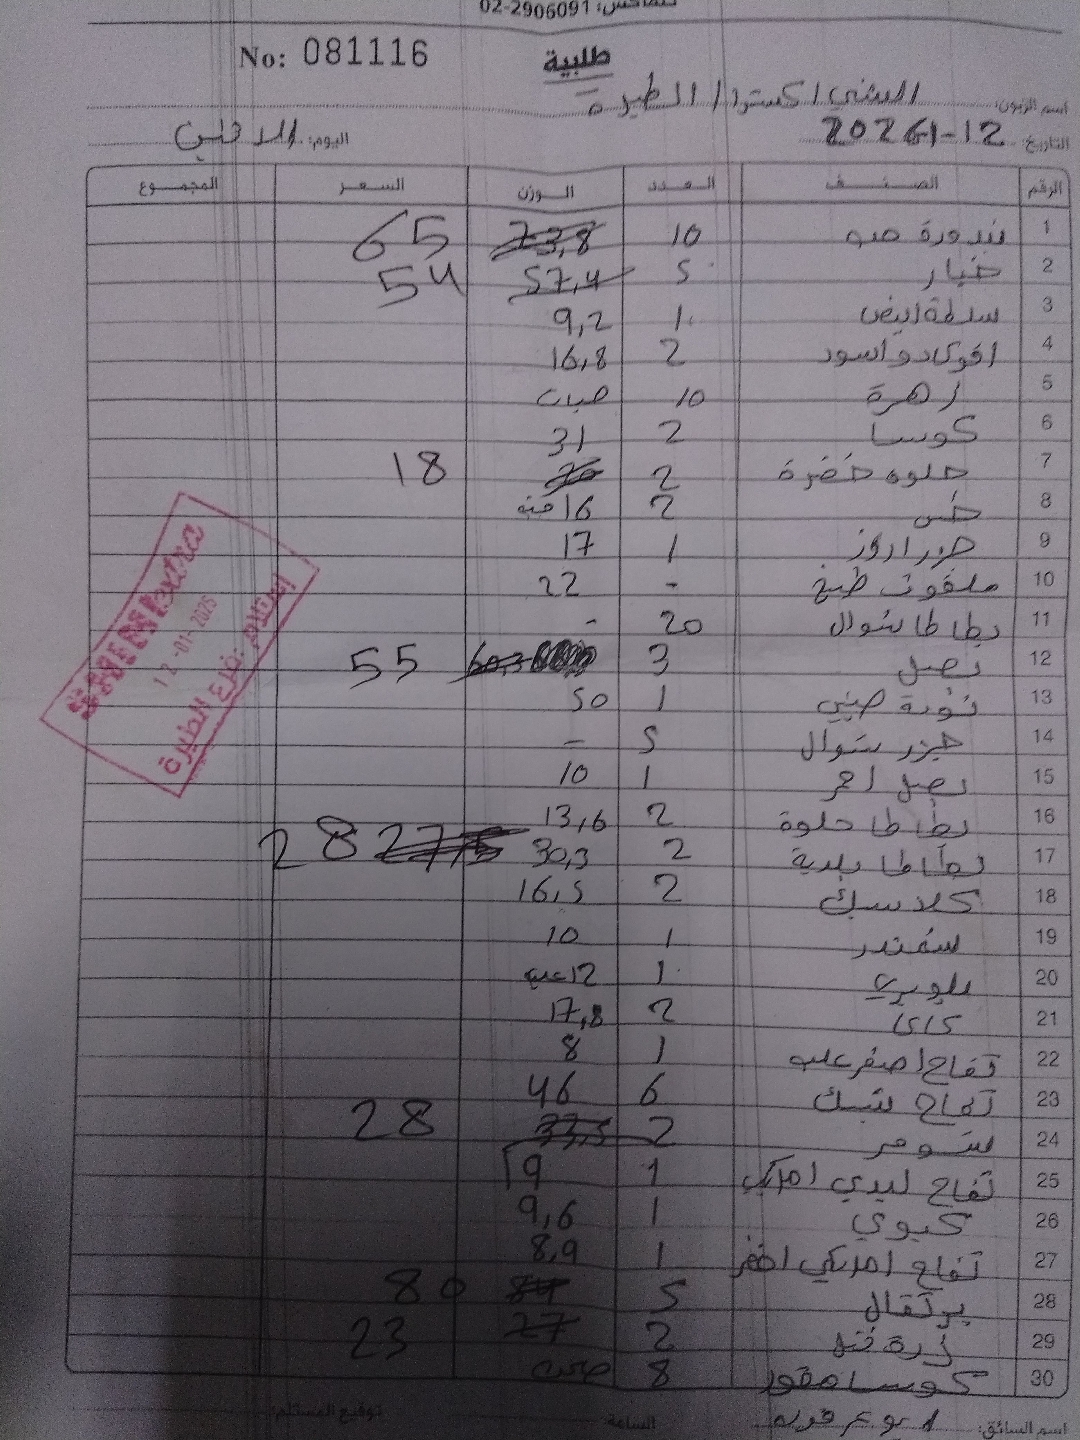 تلفاكس: 02-2906091
No: 081116
طلبية
اسم الزبون: الشني اكسترا / الطيرة
التاريخ: 12-1-2026 اليوم: الاثنين
الرقم الصنف العدد الوزن السعر المجموع
1 بندورة حب 10 73,8 65
2 خيار 5 57,4 54
3 سلطة ابيض 1 9,2
4 افوكادو اسود 2 16,8
5 زهرة 10 حبات
6 كوسا 2 31
7 حلوة خضرة 2 18
8 خس 2 16
9 1 17
10 ملفوف طبخ - 22
11 بطاطا شوال 20 -
12 بصل 3 60,3 55
13 ثومة صيني 1 50
14 جزر شوال 5 -
15 بصل احمر 1 10
16 بطاطا حلوة 2 13,6
17 بطاطا بلدية 2 30,3 27,5 28
18 كلاسيك 2 16,5
19 شمندر 1 10
20 بلوبيري 1 12 علبة
21 كاكا 2 17,8
22 تفاح اصفر علب 1 8
23 تفاح شبك 6 46
24 شومر 2 33,5 28
25 تفاح ليدي امريكي 1 9
26 كيوي 1 9,6
27 تفاح امريكي اخضر 1 8,9
28 برتقال 5 84 80
29 ذرة 2 27 23
30 كوسا منقور 8 صحن
اسم السائق: الساعة توقيع المستلم:
SHINI extra
12-01-2026
إستلام فرع الطيرة